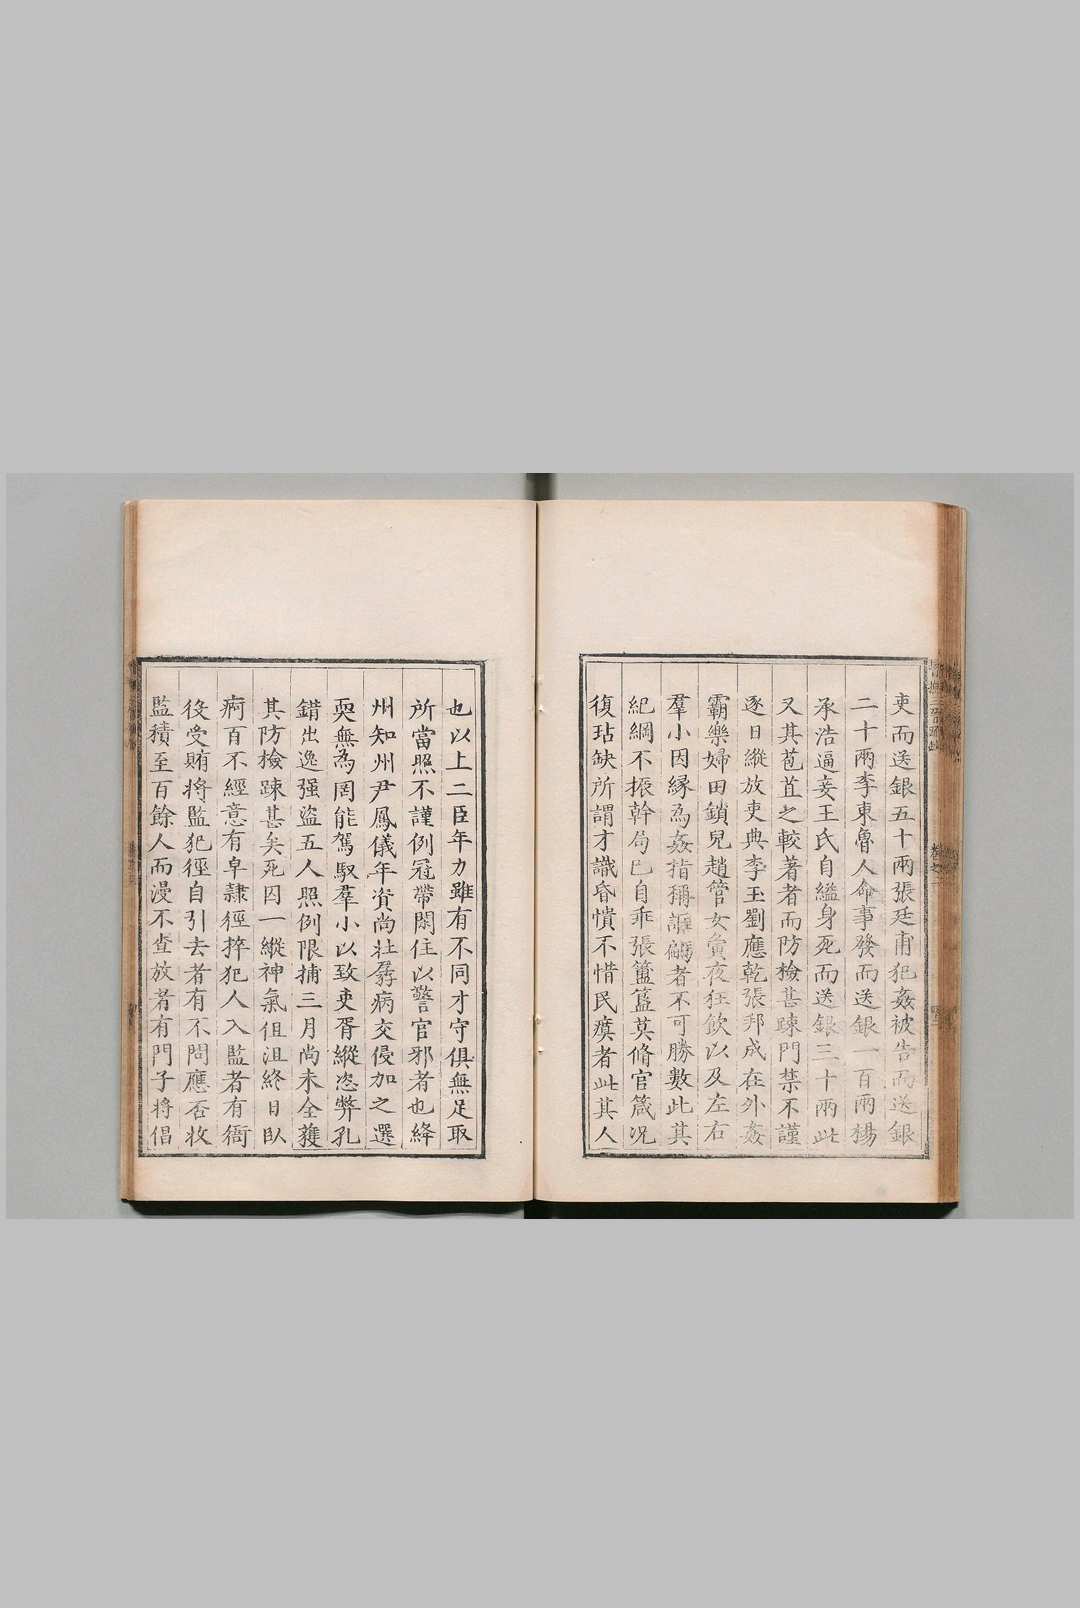 吏而送銀五十兩張廷甫犯姦被告而送銀
二十兩李東魯人命事發而送銀一百兩楊
承浩逼妾王氏自縊身死而送銀三十兩此
又其苞苴之較著者而防檢甚踈門禁不謹
逐日縱放吏典李玉劉應乾張邦成在外姦
霸樂婦田鎖兒趙管女寅夜狂飲以及左右
羣小因縁為姦指稱誆騙者不可勝數此其
紀綱不振幹局已自乖張簠簋莫脩官箴况
復玷缺所謂才識昏憒不惜民瘼者此其人
也以上二臣年力雖有不同才守俱無足取
所當照不謹例冠帶閑住以警官邪者也絳
州知州尹鳳儀年資尚壯孱病交侵加之選
耎無為罔能駕馭羣小以致吏胥縱恣弊孔
錯出逸强盜五人照例限捕三月尚未全獲
其防檢踈甚矣死囚一縱神氣俱沮終日臥
痾百不經意有皁隷徑捽犯人入監者有衙
役受賄將監犯徑自引去者有不問應否收
監積至百餘人而漫不查放者有門子將倡